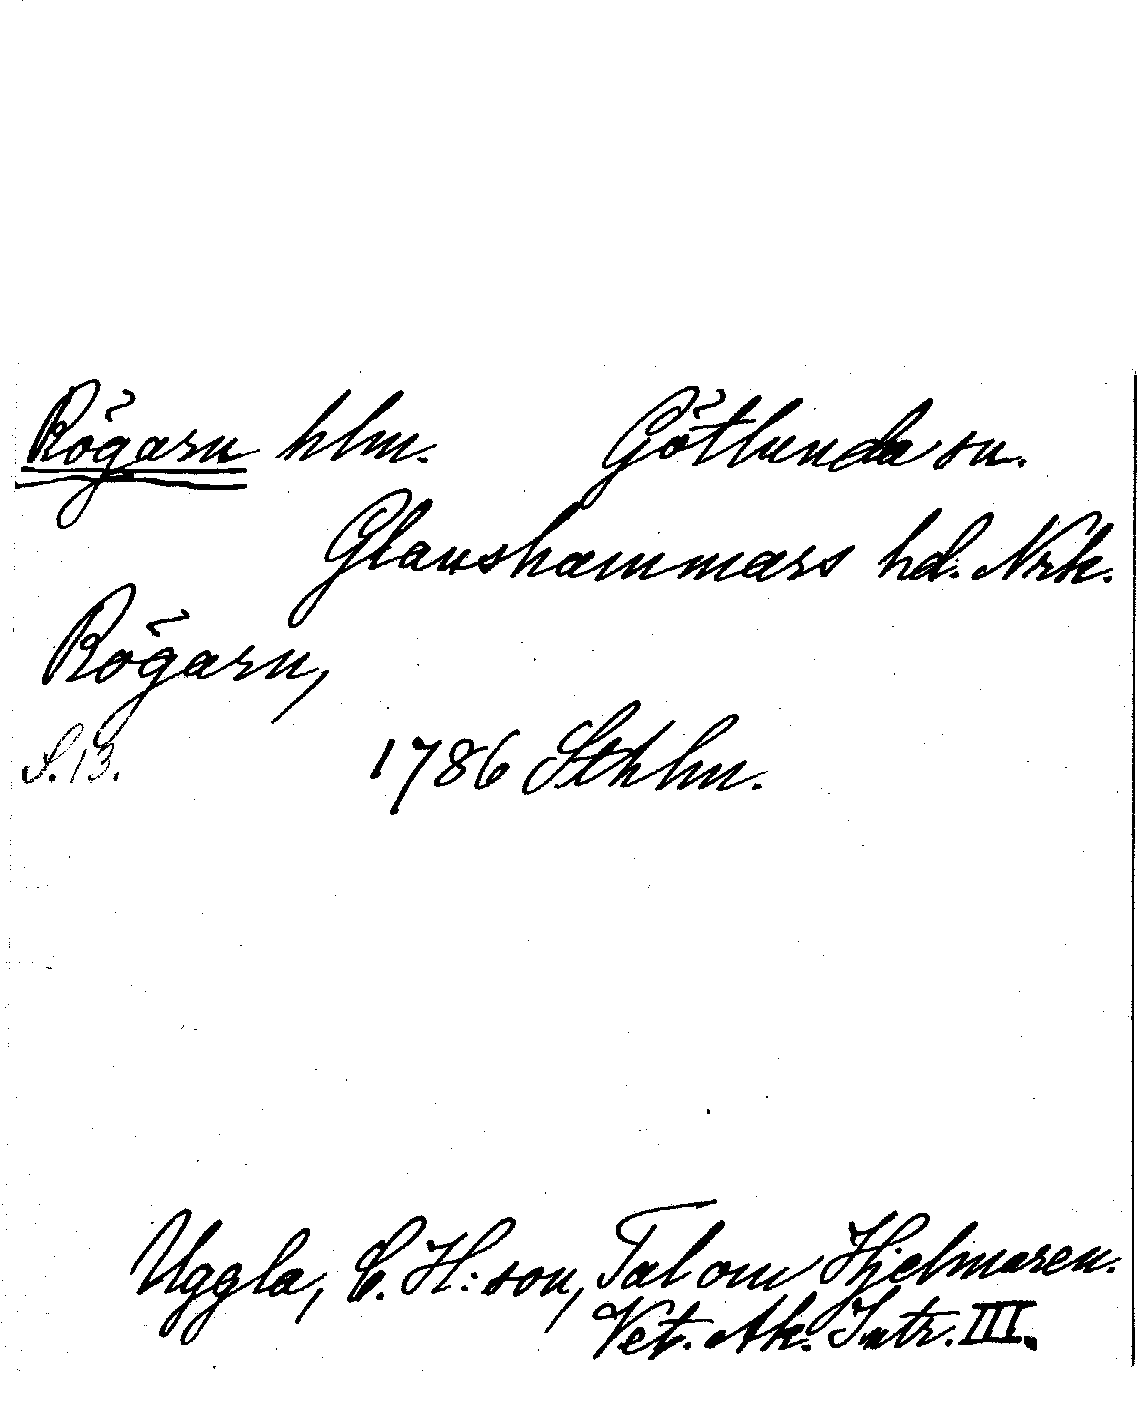 Rögarn hlm. Götlunda sn.
Glanshammars hd. Nrk.
Rögarn,
S. 13. 1786 Sthlm.
Uggla, C. H:son, Tal om Hjelmaren.
Vet. Ak. Intr. III.